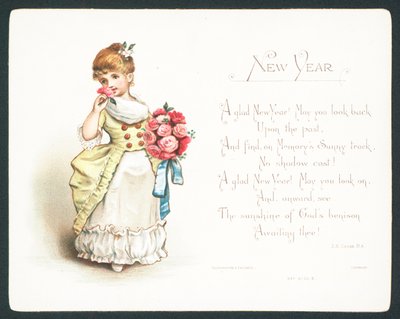 NEW YEAR
A glad New Year! May you look back
Upon the past,
And find, on Memory's Sunny track,
No shadow cast!
A glad New Year! May you look on,
And, onward, see
The sunshine of God's benison
Awaiting thee!